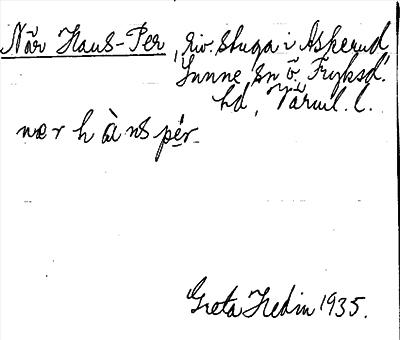 När Hans-Per, riv. stuga i Askerud,
Sunne sn Ö. Fryksd.
hd, Värml. l.
nær hàns pér.
Greta Hedin 1935.